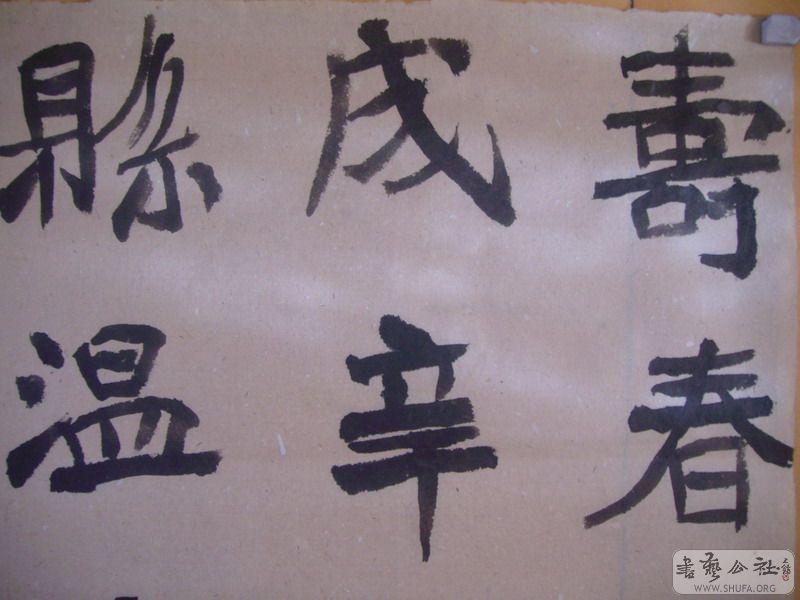 壽春
辛
縣溫
書藝公社
WWW.SHUFA.ORG